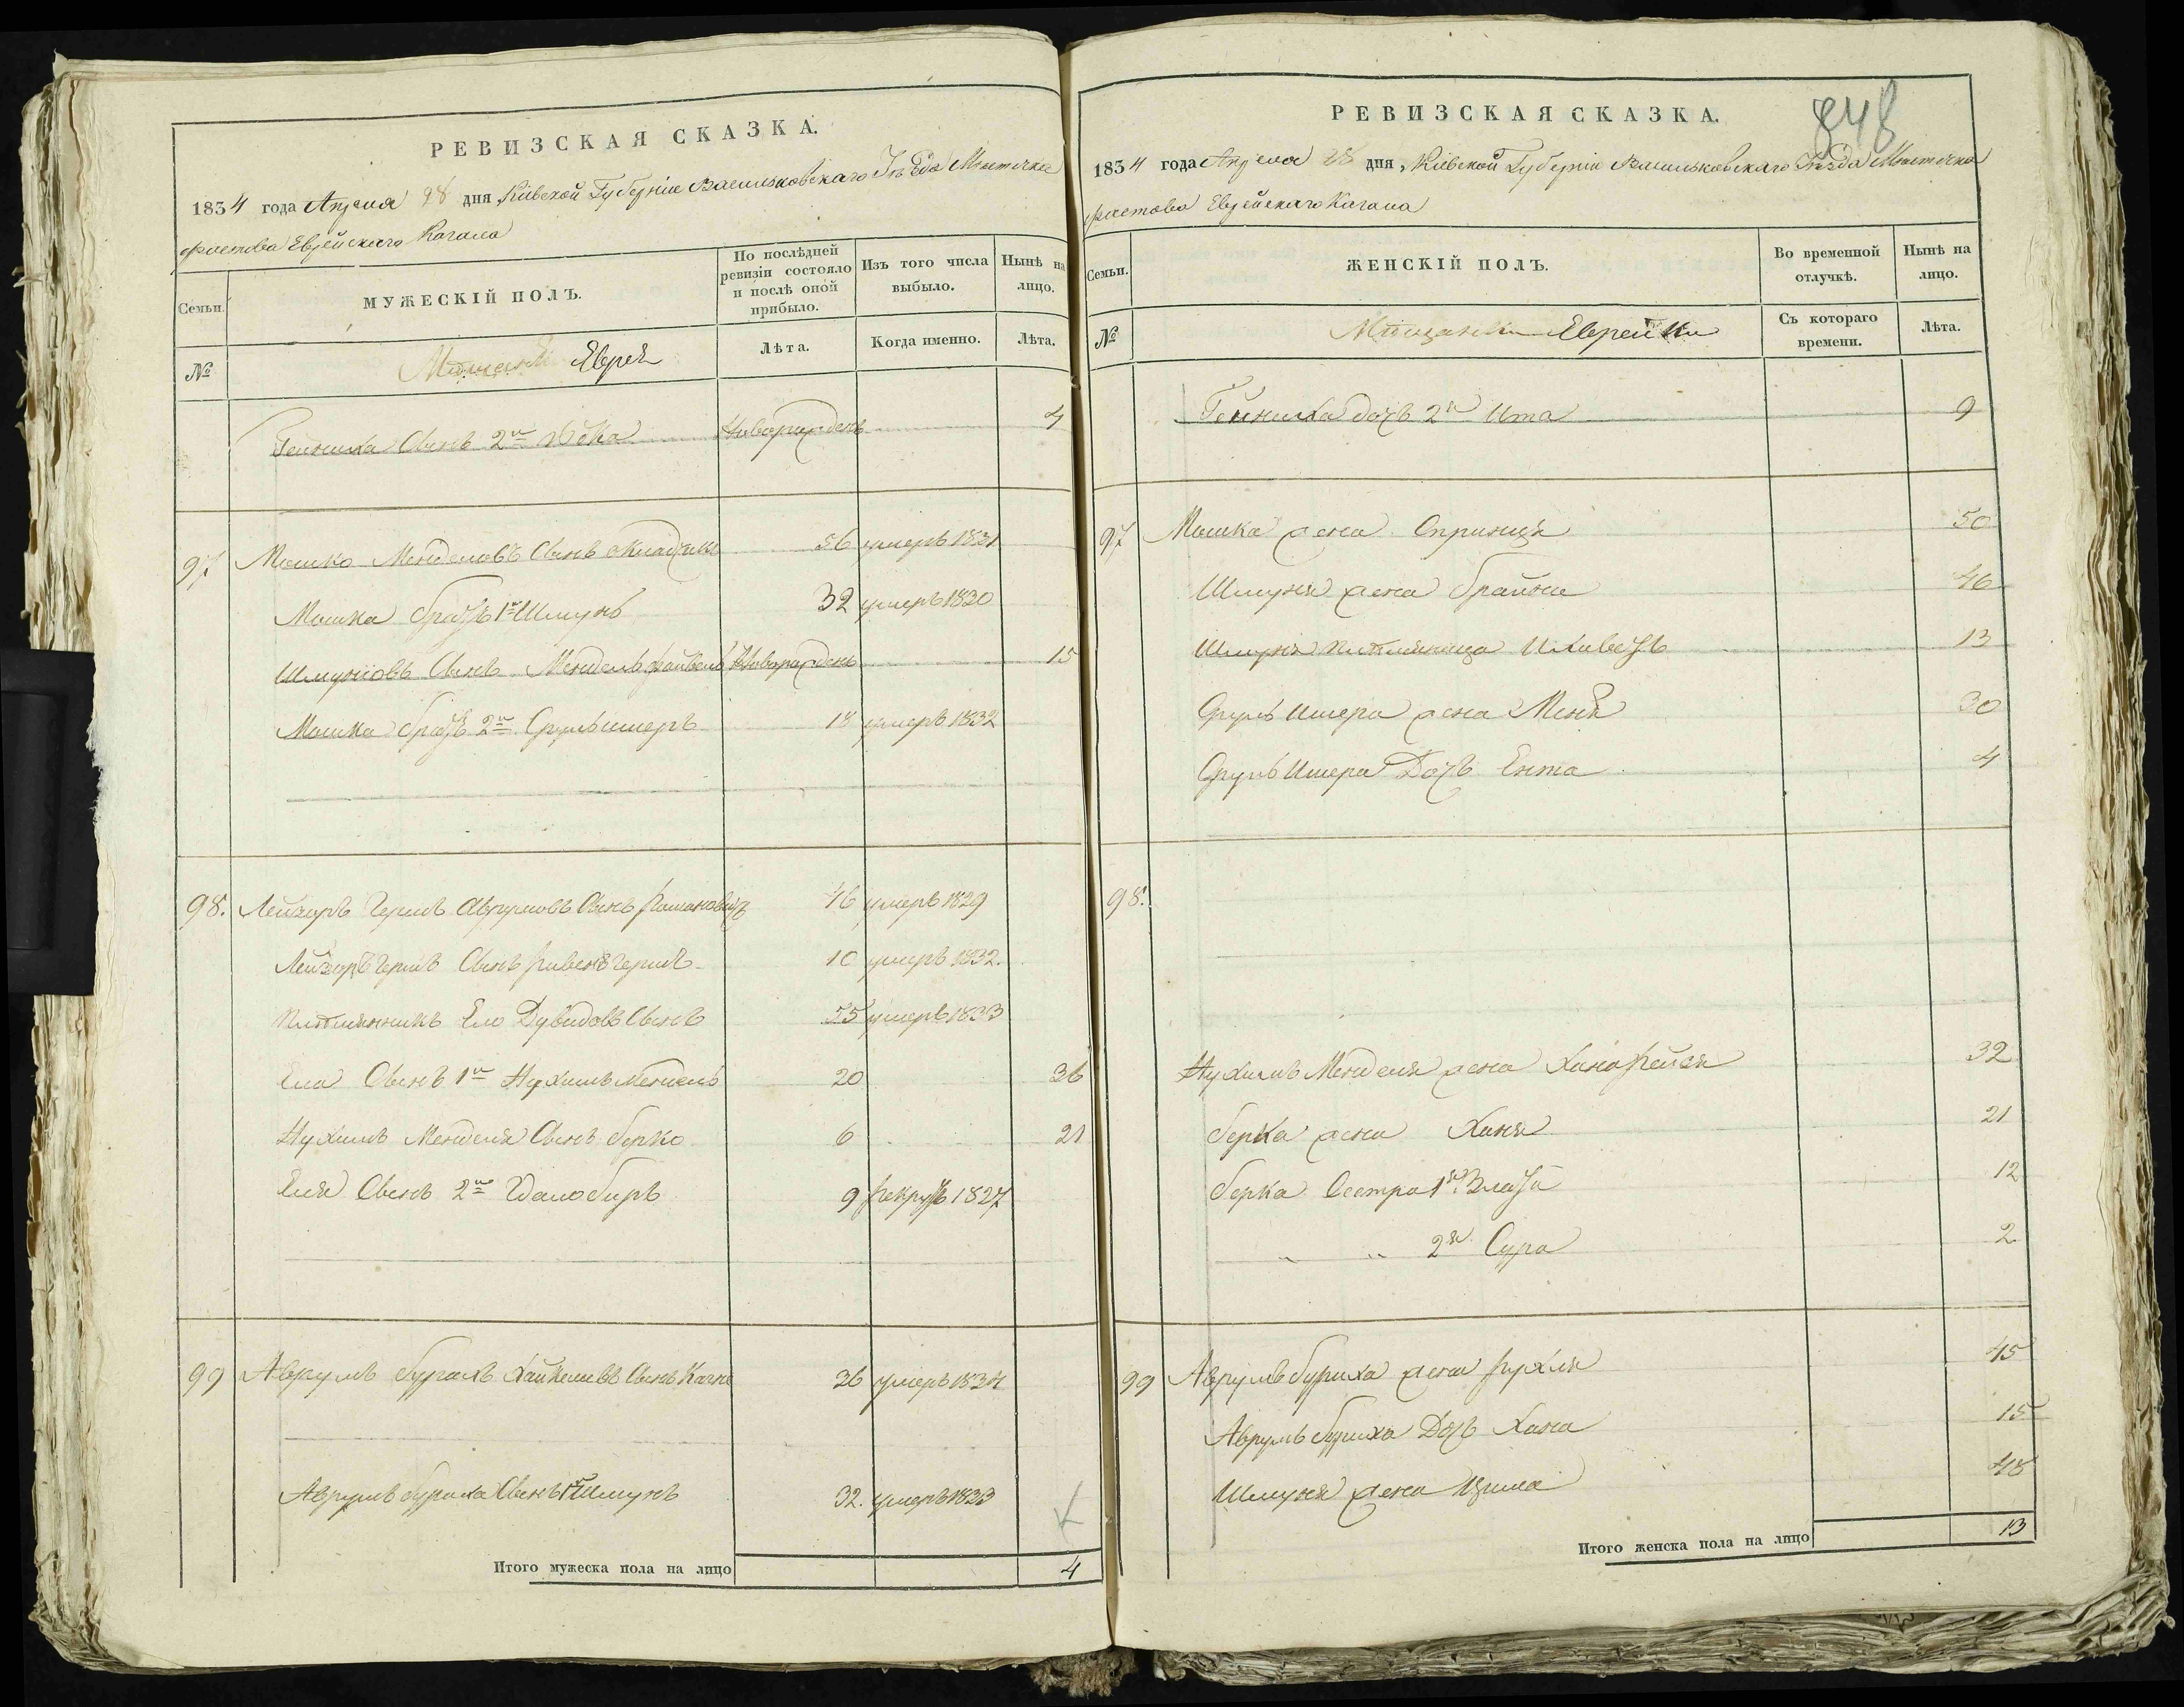 РЕВИЗСКАЯ СКАЗКА.
1834 года Апреля 28 дня Кіевской Губерніи Васильковскаго Уѣзда Мѣстечка
Фастова Еврейскаго Кагала
Семьи.
МУЖЕСКІЙ ПОЛЪ.
По послѣдней ревизіи состояло и послѣ оной прибыло.
Изъ того числа выбыло.
Нынѣ на лицо.
№
Мѣщане Евреи
Лѣта.
Когда именно.
Лѣта.
Сынъ 2й новорожденъ 4
97 Мошко Менделовъ Сынъ 56 умеръ 1831
Мошка братъ 1й Шмунь 32 умеръ 1830
Шмуніовъ Сынъ Мендель Файвель новорожденъ 15
Мошка братъ 2й Сруль Ишеръ 18 умеръ 1832
98. Лейзоръ Гершъ Аврумовъ Сынъ 46 умеръ 1829
Лейзоръ Гершъ Сынъ Рувенъ Гершъ 10 умеръ 1832.
Племянникъ Ело Дувидовъ Сынъ 55 умеръ 1833
Ела Сынъ 1й Нухимъ Мендель 20 36
Нухимъ Менделя Сынъ Берко 6 21
Еля Сынъ 2й 9 рекрутъ 1827
99 Аврумъ Бурахъ Сынъ 36 умеръ 1834
Аврумъ Бураха Сынъ 1й Шмунь 32. умеръ 1833
Итого мужеска пола на лицо 4
848
РЕВИЗСКАЯ СКАЗКА.
1834 года Апреля 28 дня Кіевской Губерніи Васильковскаго Уѣзда Мѣстечка
Фастова Еврейскаго Кагала
Семьи.
ЖЕНСКІЙ ПОЛЪ.
Во временной отлучкѣ.
Нынѣ на лицо.
№
Мѣщанки Еврейки
Съ котораго времени.
Лѣта.
дочь 2я Ита 9
97 Мошка жена Спринця 50
Шмуня жена Брайна 46
Шмуня племянница 13
Сруль Ишера жена Меня 30
Сруль Ишера Дочь Ента 4
98.
Нухимъ Менделя жена Хана Рейзя 32
Берка жена Ханя 21
Берка Сестра 1я Злата 12
" " 2я Сура 2
99 Аврумъ Бураха жена Рухля 45
Аврумъ Бураха Дочь Хана 15
Шмуня жена Цима 48
Итого женска пола на лицо 13